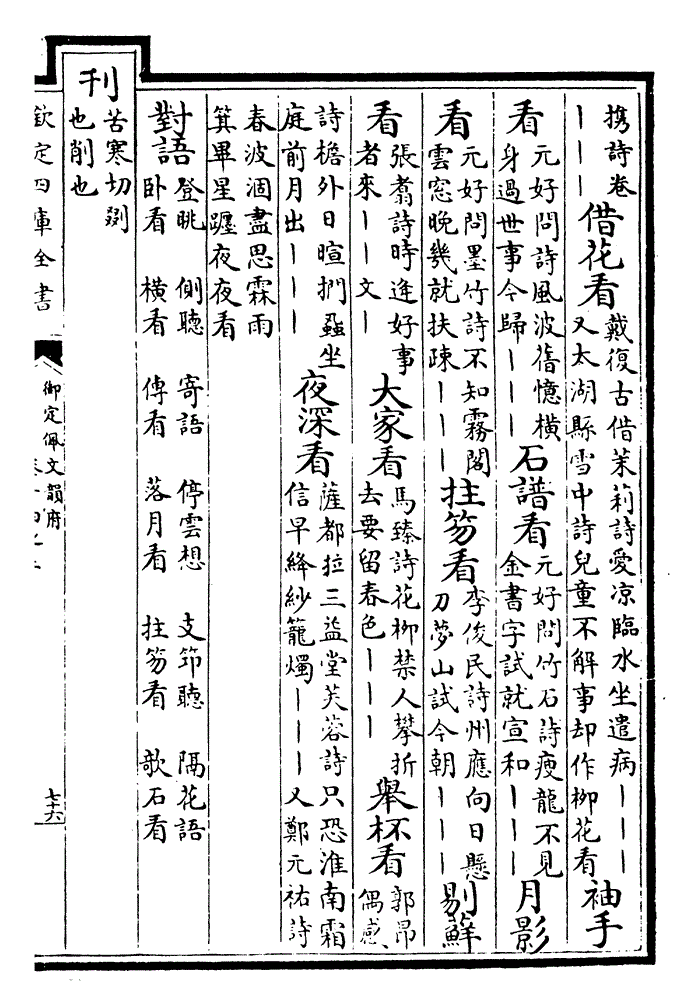 携詩卷
｜｜｜
借花看
戴復古借茉莉詩愛凉臨水坐遣病｜｜｜
又太湖縣雪中詩兒童不解事却作柳花看
袖手
看
元好問詩風波舊憶橫
身過世事今歸｜｜｜
石譜看
元好問竹石詩瘦龍不見
金書字試就宣和｜｜｜
月影
看
元好問墨竹詩不知霧閣
雲窓晚幾就扶疎｜｜｜
拄笏看
李俊民詩州應向日懸
刀夢山試今朝｜｜｜
剔蘚
看
張翥詩時逢好事
者來｜｜文｜
大家看
馬臻詩花柳禁人攀折
去要留春色｜｜｜
舉杯看
郭昂
偶感
詩檐外日暄捫蝨坐
庭前月出｜｜｜
夜深看
薩都拉三益堂芙蓉詩只恐淮南霜
信早絳紗籠燭｜｜｜又鄭元祐詩
春波涸盡思霖雨
箕畢星躔夜夜看
對語
登眺 側聽 寄語 停雲想 支笻聽 隔花語
卧看 橫看 傳看 落月看 拄笏看 欹石看
刊
苦寒切剟
也削也
欽定四庫全書
御定佩文韻府
七十六